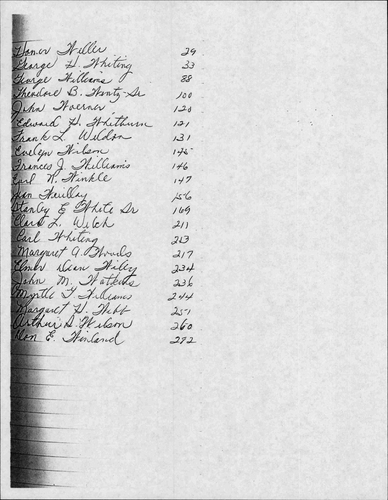 Homer Weller 29
George H. Whiting 33
George Williams 88
Theodore B. Wentz Sr 100
John Woerner 120
Edward H. Whithurn 121
Frank L. Weldon 131
Evelyn Wilson 145
Frances J. Williams 146
Earl W. Winkle 147
156
Stanley E White Sr 169
Clara L. Welch 211
Carl Whiting 213
Margaret A. Woods 217
Elmer Dean Wiley 234
John M. Watkins 236
Myrtle T. Williams 244
Margaret H. Webb 251
Arthur D. Wilson 260
Don E. Winland 292